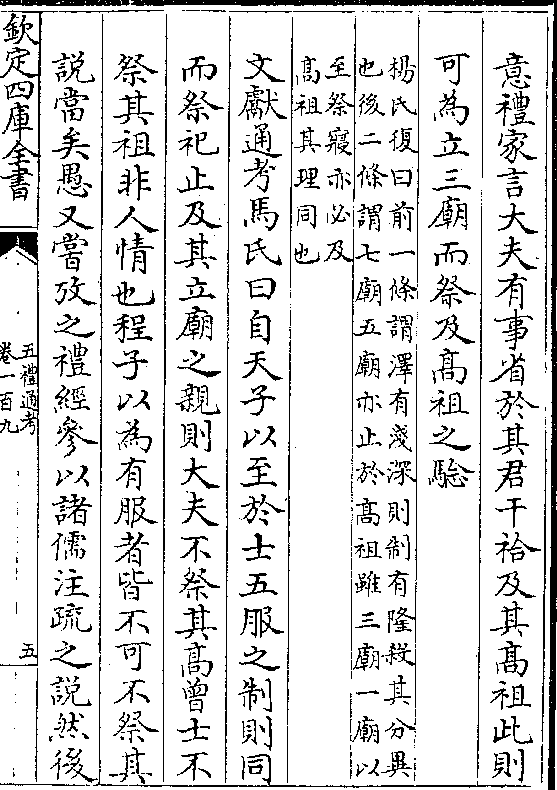 意禮家言大夫有事省於其君干祫及其髙祖此則
可為立三廟而祭及髙祖之驗
楊氏復曰前一條謂澤有淺深則制有隆殺其分異
也後二條謂七廟五廟亦止於髙祖雖三廟一廟以
至祭寢亦必及
髙祖其理同也
文獻通考馬氏曰自天子以至於士五服之制則同
而祭祀止及其立廟之親則大夫不祭其髙曾士不
祭其祖非人情也程子以為有服者皆不可不祭其
說當矣愚又嘗攷之禮經參以諸儒注疏之說然後
欽定四庫全書
五禮通考
卷一百九
五